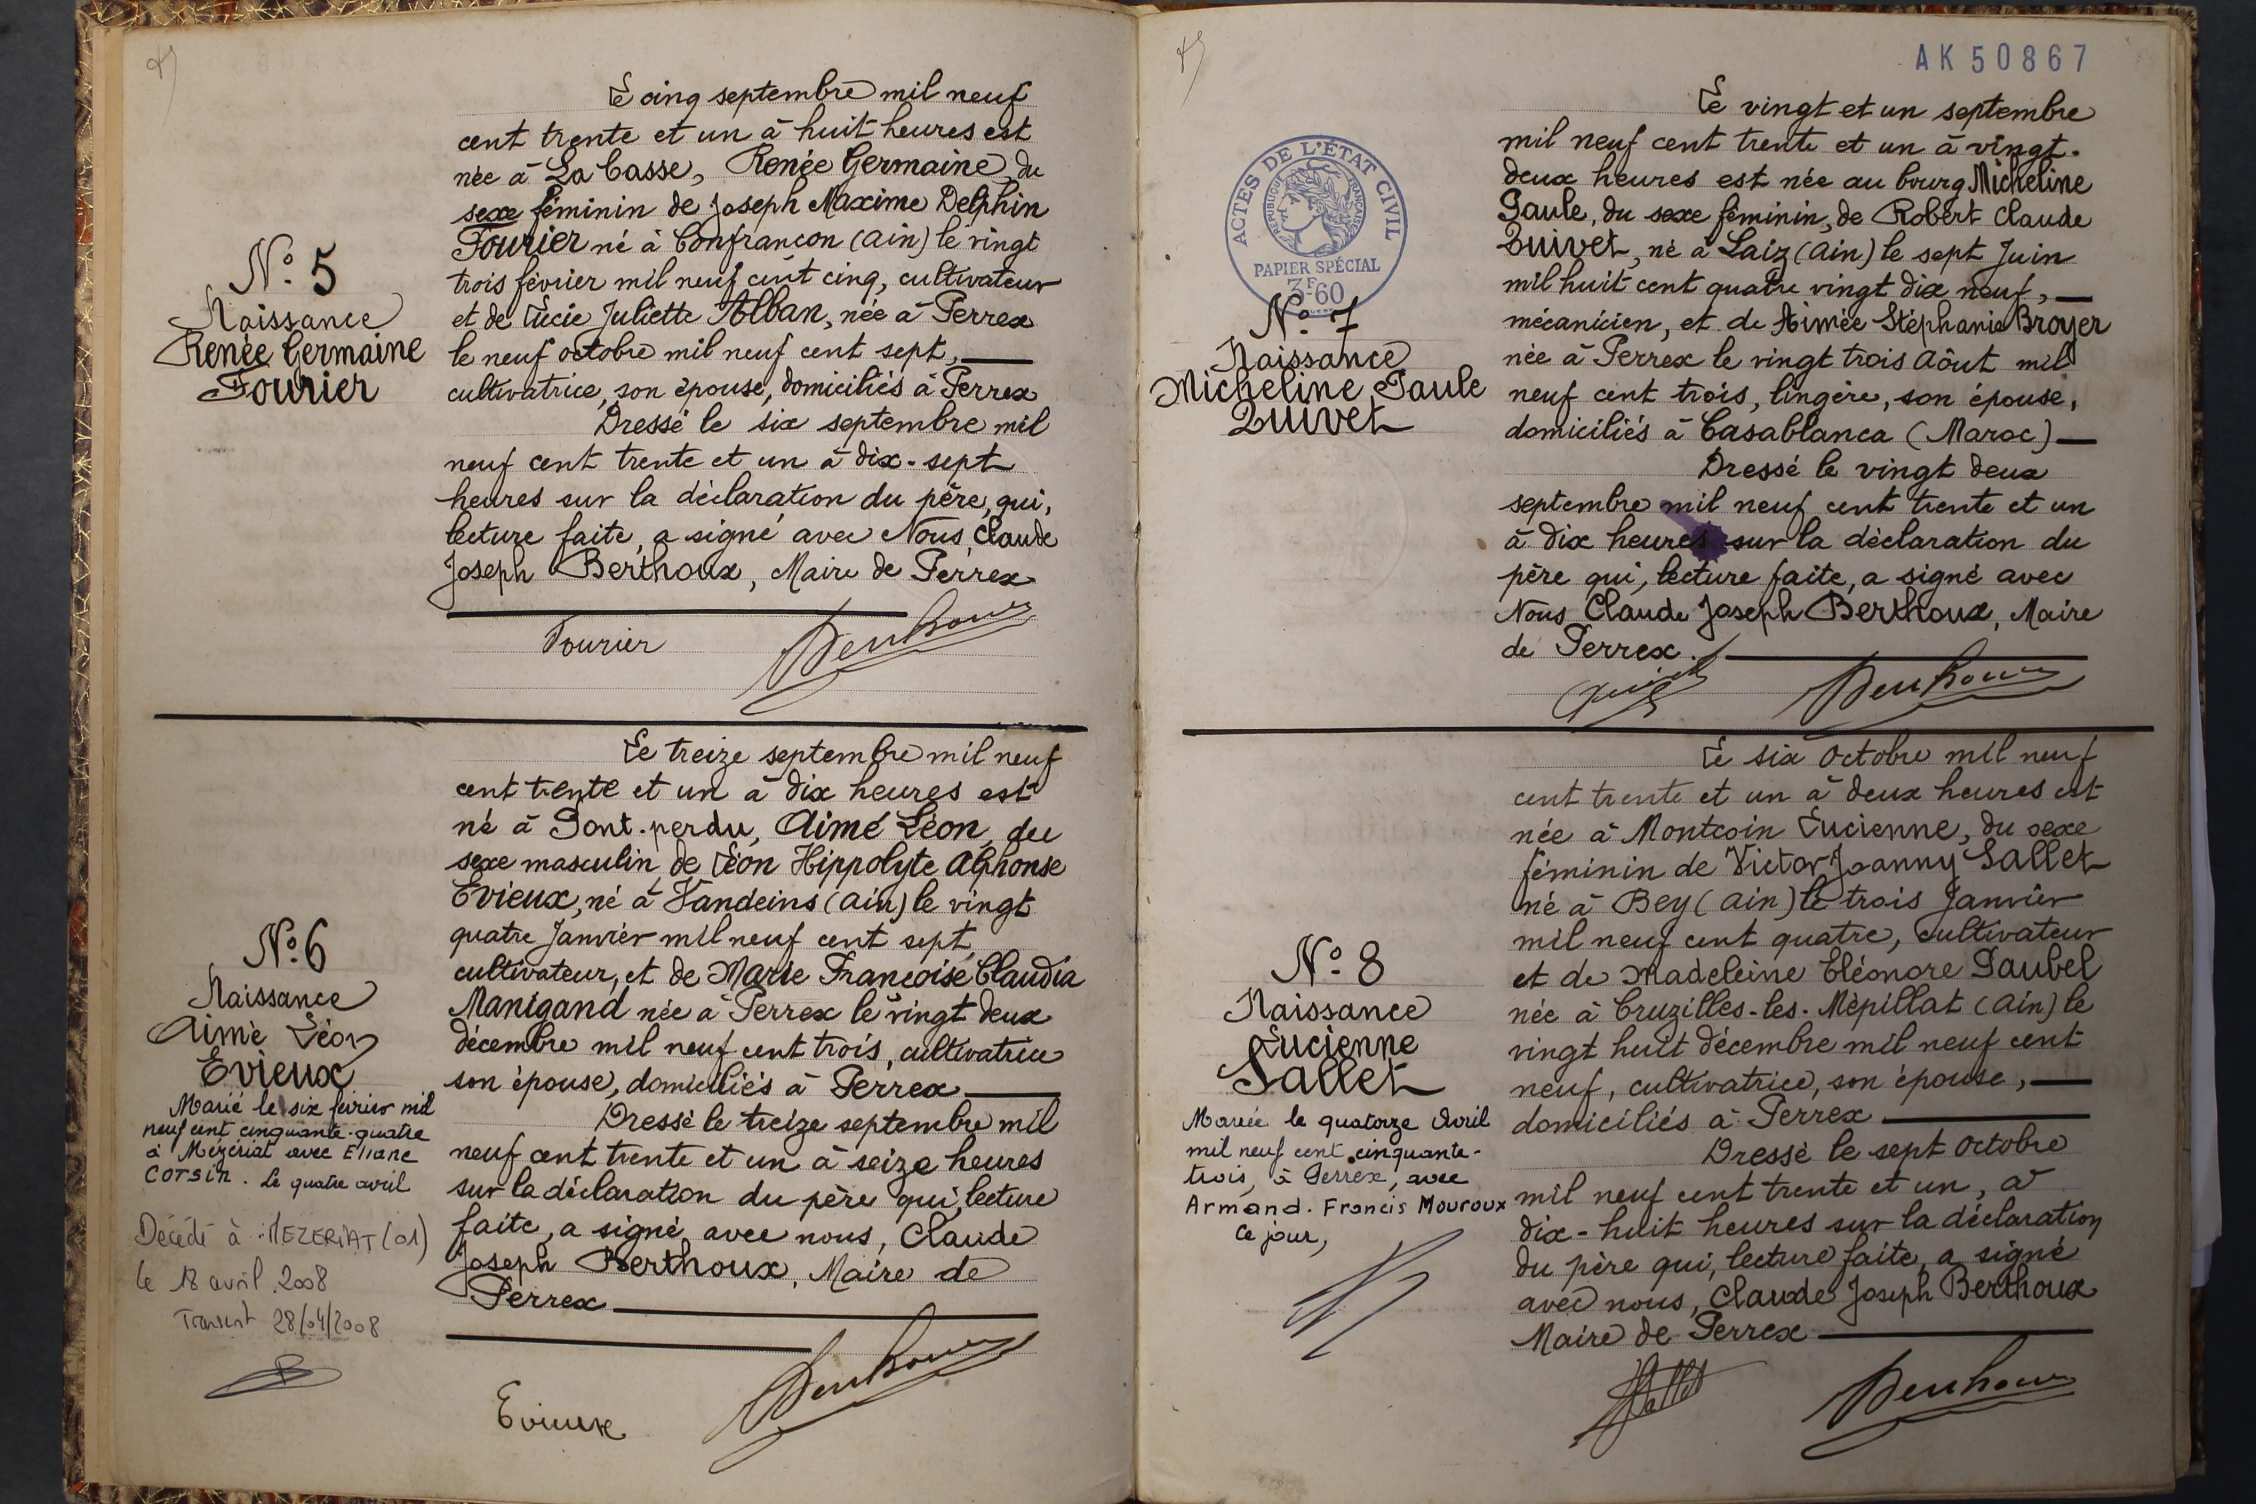 N° 5
Naissance
Renée Germaine
Fourier
Le cinq septembre mil neuf
cent trente et un à huit heures est
née à La Casse, Renée Germaine, du
sexe féminin de Joseph Maxime Delphin
Fourier né à Confrançon (Ain) le vingt
trois février mil neuf cent cinq, cultivateur
et de Lucie Juliette Alban, née à Perrex
le neuf octobre mil neuf cent sept,
cultivatrice, son épouse, domiciliés à Perrex
Dressé le six septembre mil
neuf cent trente et un à dix-sept
heures sur la déclaration du père, qui,
lecture faite, a signé avec Nous, Claude
Joseph Berthoux, Maire de Perrex
Fourier Berthoux
N° 6
Naissance
Aimé Léon
Evieux
Marié le six février mil
neuf cent cinquante-quatre
à Mézériat avec Eliane
CORSIN. Le quatre avril
Décédé à MEZERIAT (01)
le 18 avril 2008
Transcrit 28/04/2008
Le treize septembre mil neuf
cent trente et un à dix heures est
né à Pont-perdu, Aimé Léon, du
sexe masculin, de Léon Hippolyte Alphonse
Evieux, né à Vandeins (Ain) le vingt
quatre Janvier mil neuf cent sept,
cultivateur, et de Marie Françoise Claudia
Manigand née à Perrex le vingt deux
décembre mil neuf cent trois, cultivatrice
son épouse, domiciliés à Perrex
Dressé le treize septembre mil
neuf cent trente et un à seize heures
sur la déclaration du père qui, lecture
faite, a signé avec nous, Claude
Joseph Berthoux, Maire de
Perrex
Evieux Berthoux
AK 50867
ACTES DE L'ÉTAT CIVIL
RÉPUBLIQUE FRANÇAISE
PAPIER SPÉCIAL
3F60
N° 7
Naissance
Micheline Paule
Quivet
Le vingt et un septembre
mil neuf cent trente et un à vingt-
deux heures est née au bourg Micheline
Paule, du sexe féminin, de Robert Claude
Quivet, né à Laiz (Ain) le sept Juin
mil huit cent quatre vingt dix neuf,
mécanicien, et de Aimée Stéphanie Broyer
née à Perrex le vingt trois Aôut mil
neuf cent trois, lingère, son épouse,
domiciliés à Casablanca (Maroc)
Dressé le vingt deux
septembre mil neuf cent trente et un
à dix heures sur la déclaration du
père qui, lecture faite, a signé avec
Nous Claude Joseph Berthoux, Maire
de Perrex.
Quivet Berthoux
N° 8
Naissance
Lucienne
Sallet
Mariée le quatorze Avril
mil neuf cent cinquante-
trois, à Perrex, avec
Armand-Francis Mouroux
Ce jour,
Le six Octobre mil neuf
cent trente et un à deux heures est
née à Montcoin Lucienne, du sexe
féminin de Victor Joanny Sallet
né à Bey (Ain) le trois Janvier
mil neuf cent quatre, cultivateur
et de Madeleine Eléonore Paubel
née à Cruzilles-les-Mépillat (Ain) le
vingt huit décembre mil neuf cent
neuf, cultivatrice, son épouse,
domiciliés à Perrex
Dressé le sept Octobre
mil neuf cent trente et un, à
dix-huit heures sur la déclaration
du père qui, lecture faite, a signé
avec nous, Claude Joseph Berthoux
Maire de Perrex
Sallet Berthoux